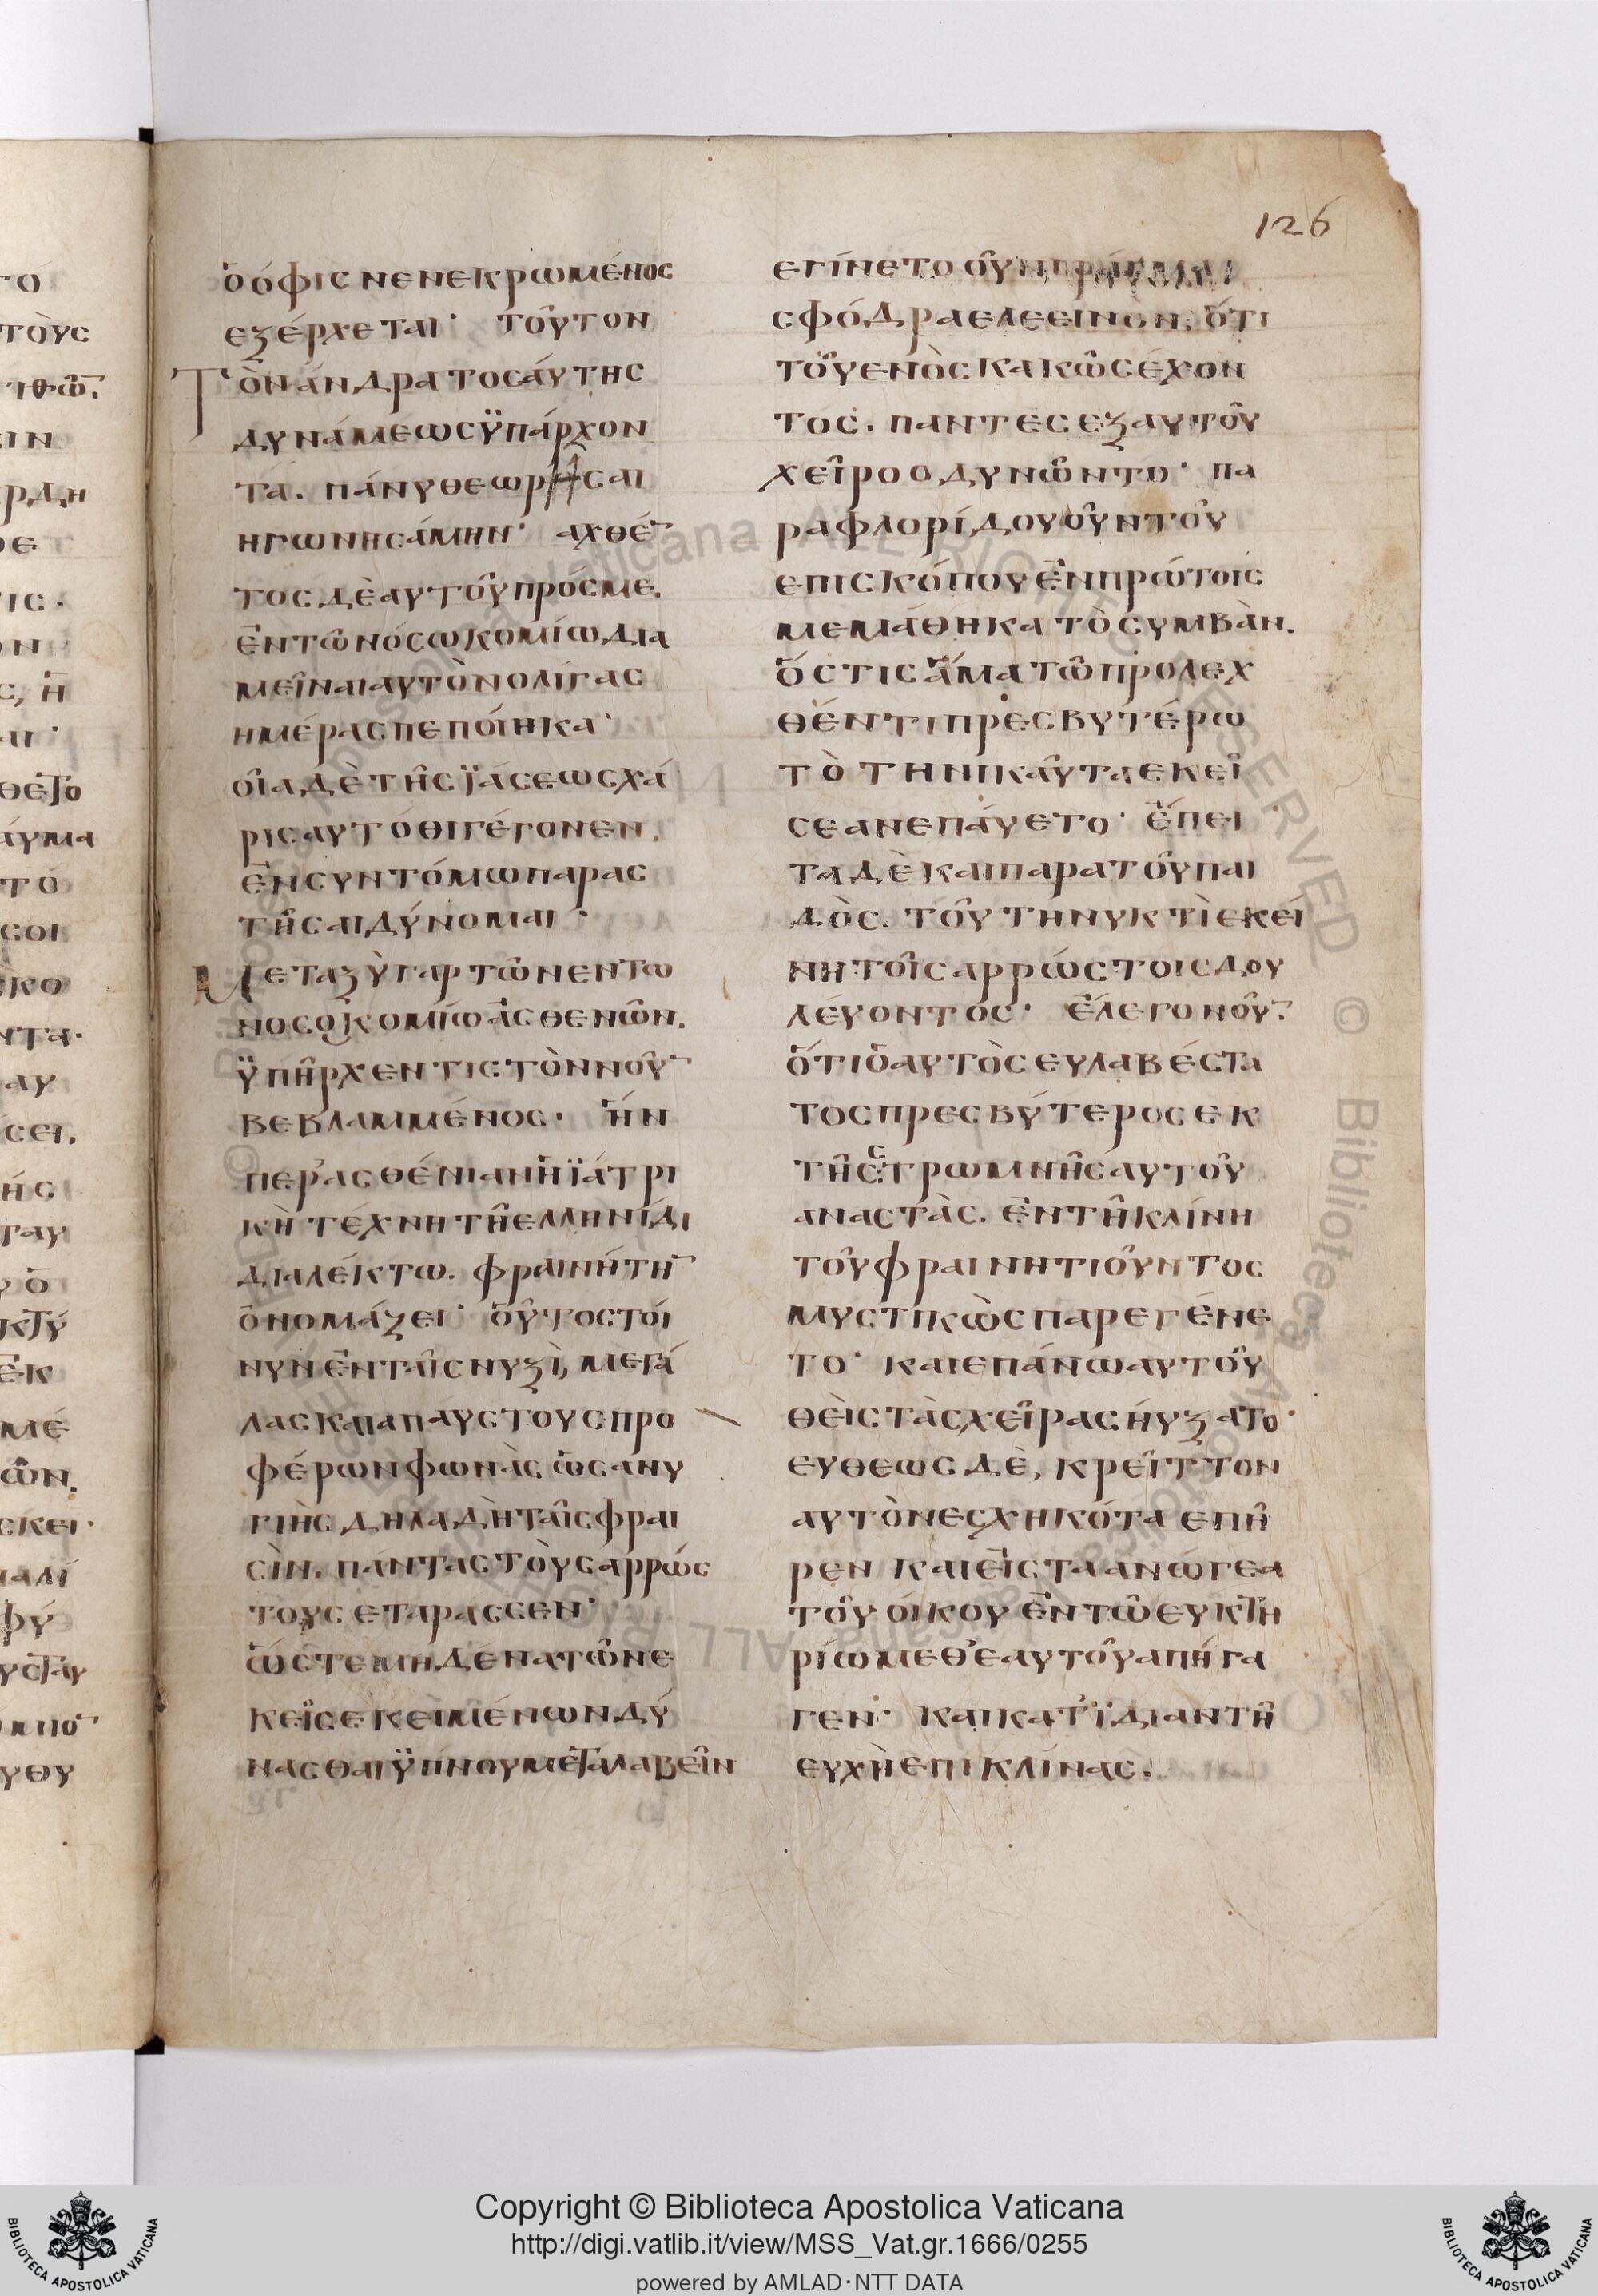 126
ὁ ὄφις νενεκρωμένος
εξέρχεται· τοῦτον
Τὸν άνδρα τοσάυτης
δυνάμεως ϋπάρχον
τά. πάνυ θεωρῆσαι
ηγωνησάμην· αχθέ̅
τος δὲ αυτοῦ πρός με.
ἐν τῶ νόσωκομίω δια
μεῖναι αυτὸν ολίγας
ημέρας πεποίηκα·
οἵα δὲ τῆς ϊάσεως χά
ρις αυτόθι γέγονεν.
ἐν συντόμω παρασ
τῆσαι δύνομαι·
Μεταξὺ γαρ τῶν εν τω
νοσοκομίω ἀσθενῶν.
ϋπῆρχεν τις τὸν νοῦ̅
βεβλαμμένος· ἥν
περ ασθένιαν ἡ ϊάτρι
κὴ τέχνη τῆ ελληνίδι
διαλέκτω. φραινήτη̅
ὀνομάζει· οὗτος τοί
νυν ἐν ταῖς νυξὶ, μεγά
λας και απαύστους προ
φέρων φωνὰς ὡς ανυ
γιὴς δηλαδὴ ταῖς φραι
σὶν. πάντας τοὺς αρρώς
τους εταρασσεν·
ὥστε μηδένα τῶν ε
κεῖσε κειμένων δύ
νασθαι ϋπνου μεταλαβεῖν
εγίνετο οῦν πρᾶγμα
σφόδρα ελεεινὸν, ὅτι
τοῦ ενὸς κακῶς έχον
τος. παντες εξ αυτοῦ
χεῖρο οδυνῶντο· πα
ρα φλορίδου οῦν τοῦ
επισκόπου ἐν πρώτοις
μεμάθηκα τὸ συμβὰν.
ὅστις ἅμα τῶ προλεχ
θέντι πρεσβυτέρω
τὸ τηνικαῦτα εκεῖ
σε ανεπάυετο· ἔπει
τα δὲ και παρα τοῦ παι
δὸς. τοῦ τη νυκτὶ εκεί
νη τοῖς αρρώστοις δου
λέυοντος· ἔλεγον οῦ̅.
ὅτι ὁ αυτὸς ευλαβέστα
τος πρεσβύτερος εκ
τῆς στρωμνῆς αυτοῦ
αναστὰς. ἐν τῆ κλίνη
τοῦ φραινητιοῦντος
μυστικὼς παρεγένε
το· και επάνω αυτοῦ
θεὶς τὰς χεῖρας ήυξατο·
ευθεως δὲ, κρεῖττον
αυτὸν εσχηκότα επῆ
ρεν και εἰς τα ανώγεα
τοῦ οίκου ἐν τῶ ευκτη
ρίω μεθ' εαυτοῦ απήγα
γεν· και κατ' ϊδιαν τῆ
ευχὴ επικλίνας.
Copyright © Biblioteca Apostolica Vaticana
http://digi.vatlib.it/view/MSS_Vat.gr.1666/0255
powered by AMLAD·NTT DATA
BIBLIOTECA APOSTOLICA VATICANA
BIBLIOTECA APOSTOLICA VATICANA